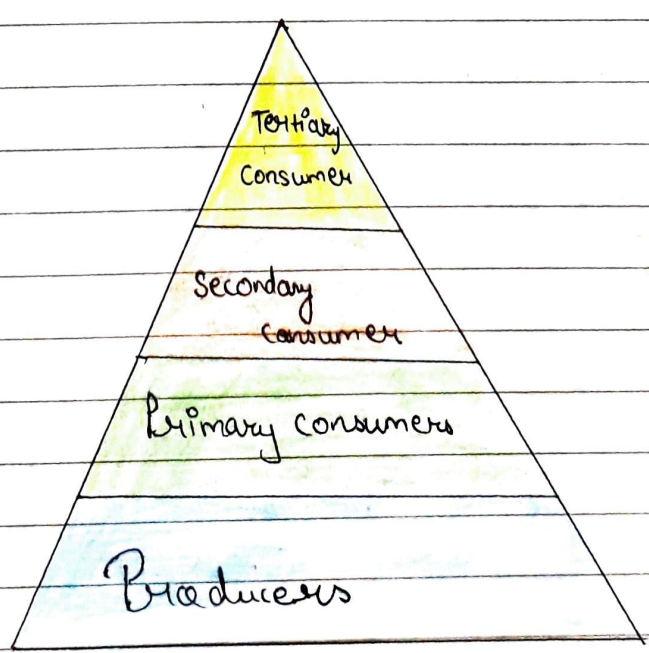 Tertiary
Consumer
Secondary
Consumer
Primary consumers
Producers